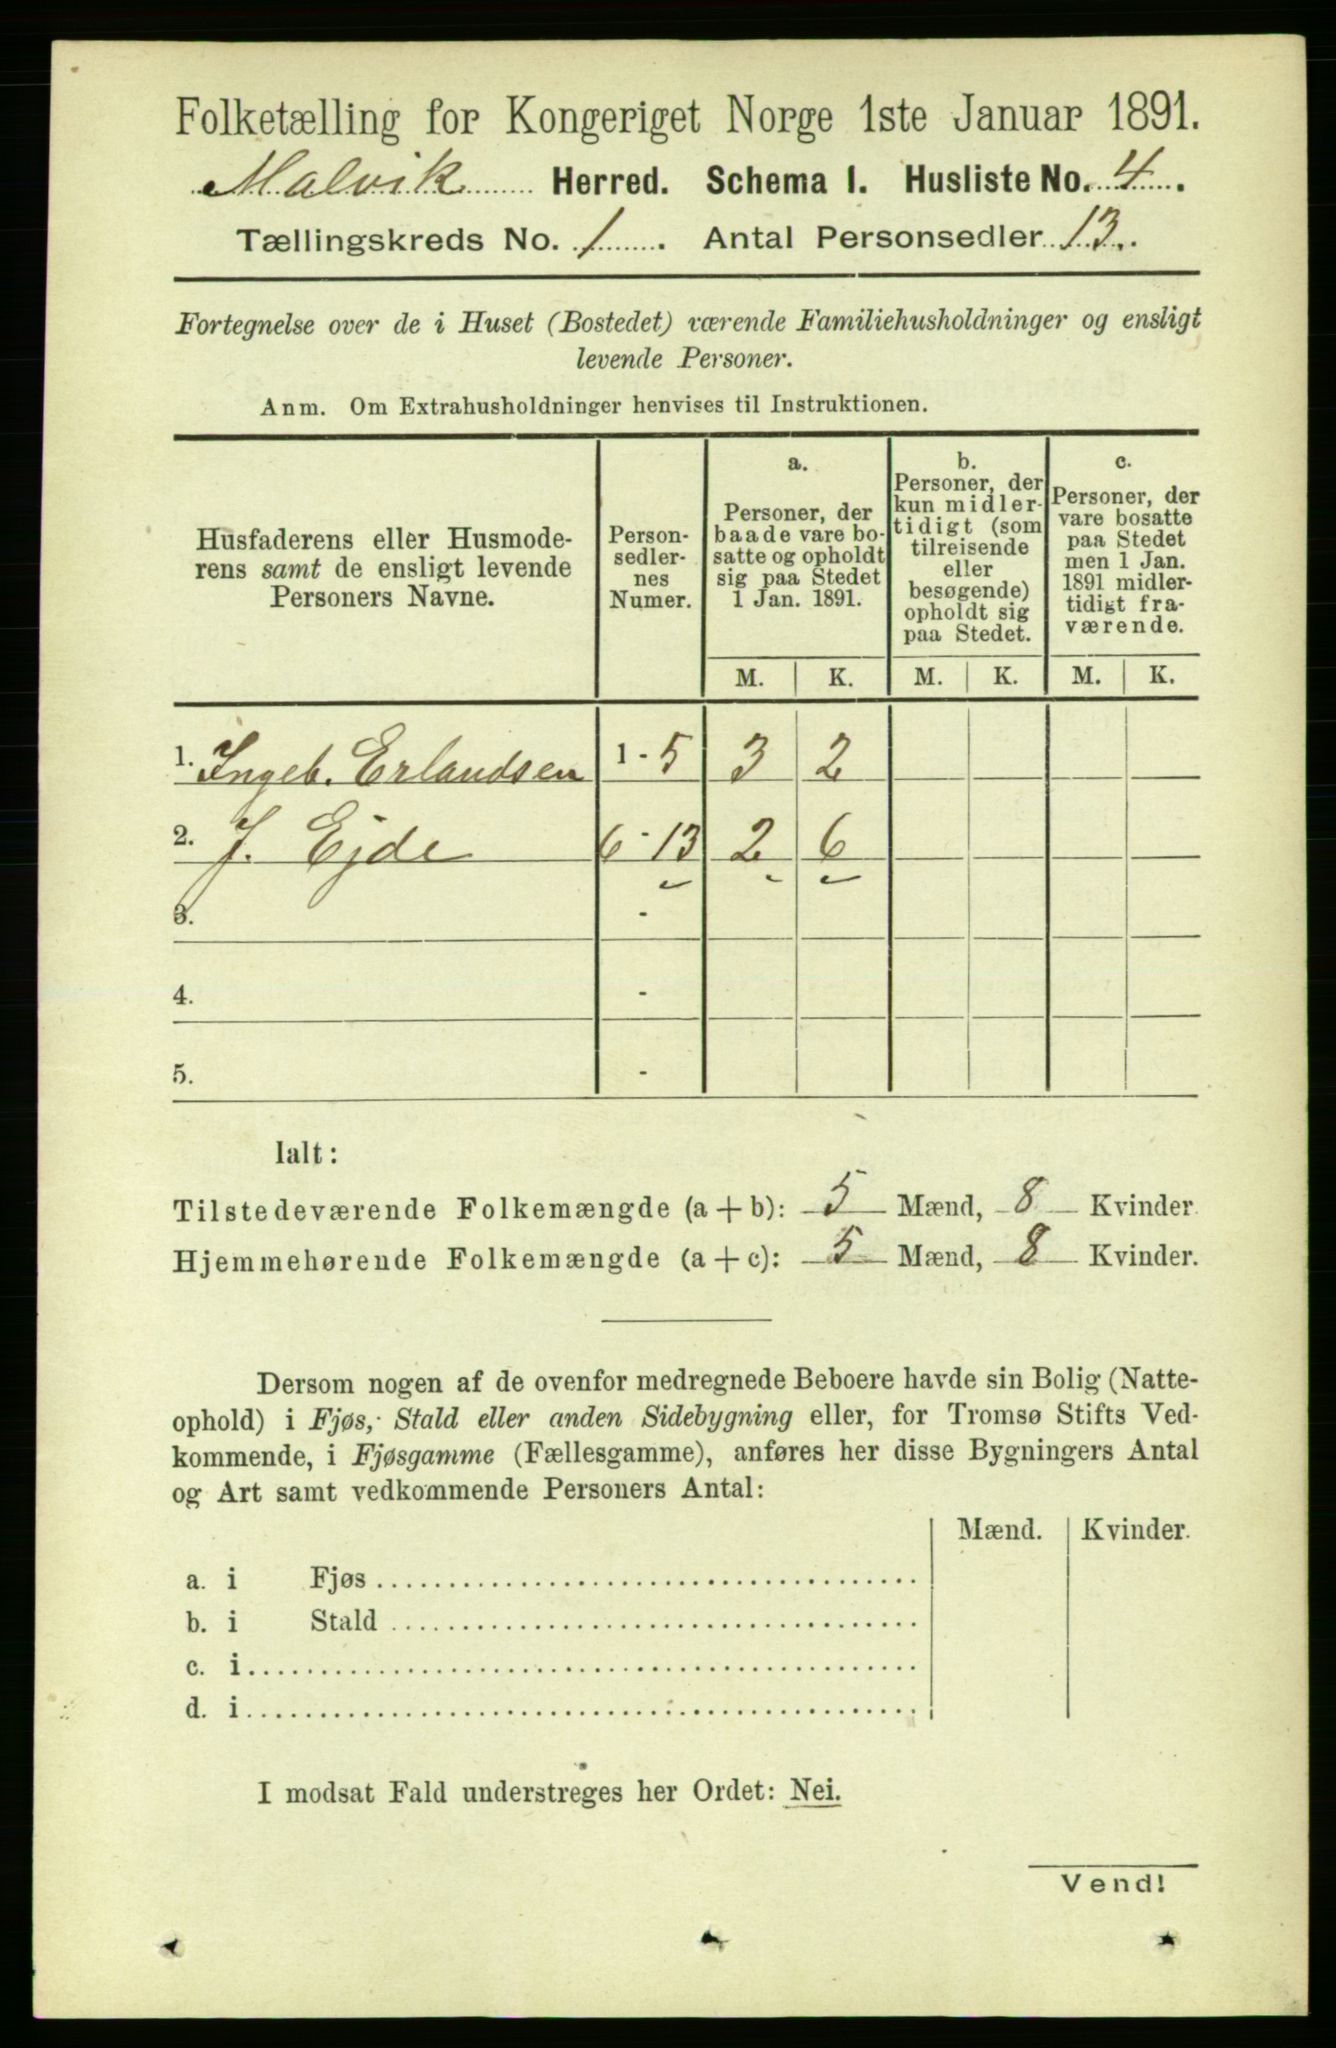 Folketælling for Kongeriget Norge 1ste Januar 1891.
Malvik Herred. Schema 1. Husliste No. 4.
Tællingskreds No. 1. Antal Personsedler 13.
Fortegnelse over de i Huset (Bostedet) værende Familiehusholdninger og ensligt
levende Personer.
Anm. Om Extrahusholdninger henvises til Instruktionen.
Husfaderens eller Husmode-
rens samt de ensligt levende
Personers Navne.
Person-
sedler-
nes
Numer.
a.
Personer, der
baade vare bo-
satte og opholdt
sig paa Stedet
1 Jan. 1891.
b.
Personer, der
kun midler-
tidigt (som
tilreisende
eller
besøgende)
opholdt sig
paa Stedet.
c.
Personer, der
vare bosatte
paa Stedet
men 1 Jan.
1891 midler-
tidigt fra-
værende.
M. K. M. K. M. K.
1. Ingeb. Erlandsen 1-5 3 2
2. J. Ejde 6-13 2 6
3. -
4. -
5. -
Ialt:
Tilstedeværende Folkemængde (a+b): 5 Mænd, 8 Kvinder.
Hjemmehørende Folkemængde (a+c): 5 Mænd, 8 Kvinder.
Dersom nogen af de ovenfor medregnede Beboere havde sin Bolig (Natte-
ophold) i Fjøs, Stald eller anden Sidebygning eller, for Tromsø Stifts Ved-
kommende, i Fjøsgamme (Fællesgamme), anføres her disse Bygningers Antal
og Art samt vedkommende Personers Antal:
Mænd. Kvinder.
a. i Fjøs
b. i Stald
c. i
d. i
I modsat Fald understreges her Ordet: Nei.
Vend!